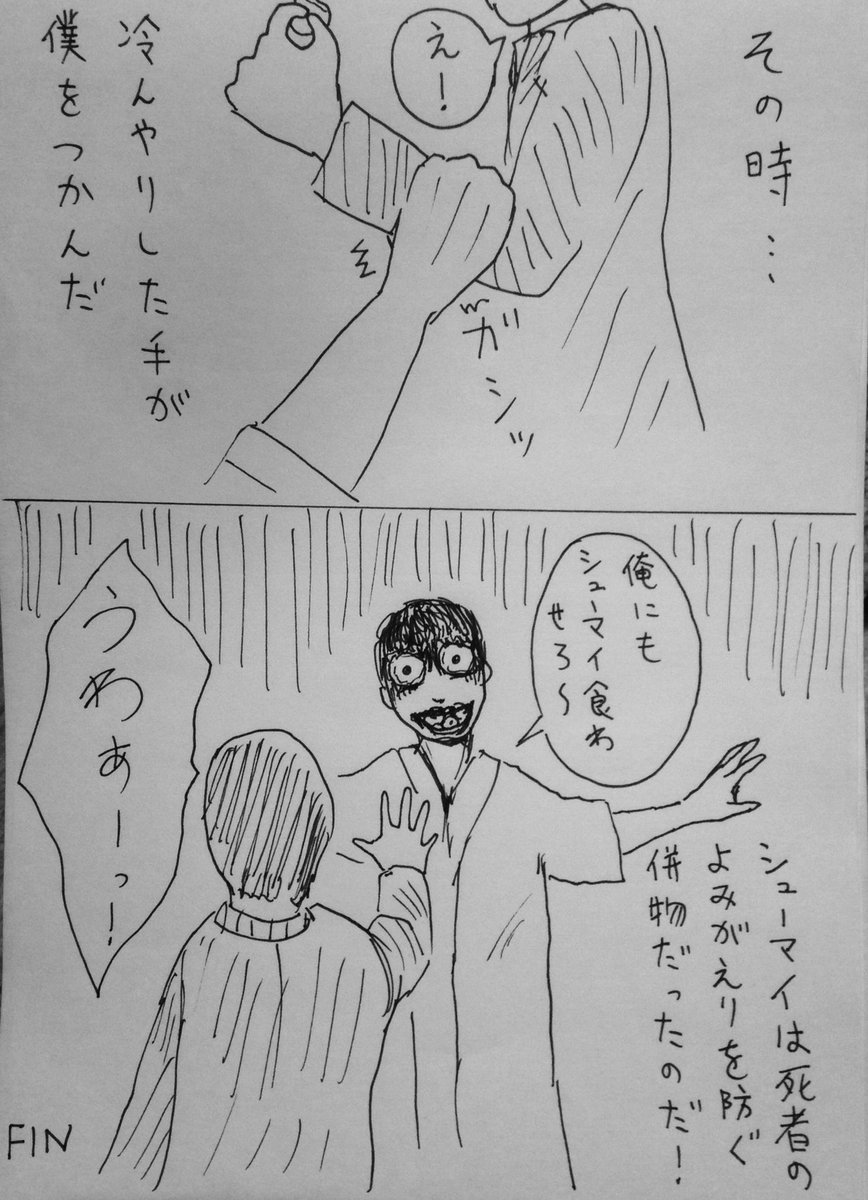 その時…
え!
冷んやりした手が
僕をつかんだ
ガシッ
俺にも
シューマイ食わ
せろ〜
うわぁーっ!
シューマイは死者の
よみがえりを防ぐ
併物だったのだ!
FIN